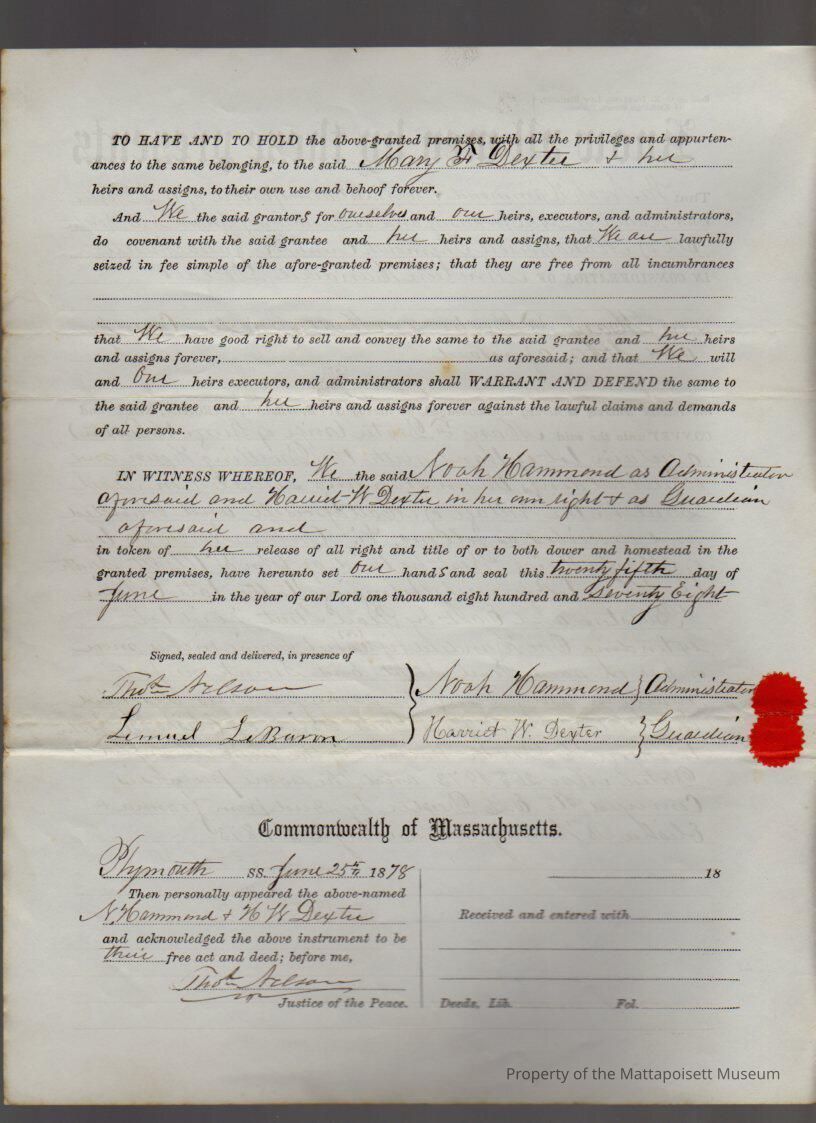 TO HAVE AND TO HOLD the above-granted premises, with all the privileges and appurten-
ances to the same belonging, to the said Mary F Dexter & her
heirs and assigns, to their own use and behoof forever.
And We the said grantors for ourselves and our heirs, executors, and administrators,
do covenant with the said grantee and her heirs and assigns, that We are lawfully
seized in fee simple of the afore-granted premises; that they are free from all incumbrances
that We have good right to sell and convey the same to the said grantee and her heirs
and assigns forever, as aforesaid; and that We will
and Our heirs executors, and administrators shall WARRANT AND DEFEND the same to
the said grantee and her heirs and assigns forever against the lawful claims and demands
of all persons.
IN WITNESS WHEREOF, We the said Noah Hammond as Administrator
aforesaid and Harriet W Dexter in her own right & as Guardian
aforesaid and
in token of her release of all right and title of or to both dower and homestead in the
granted premises, have hereunto set our hands and seal this twenty fifth day of
June in the year of our Lord one thousand eight hundred and Seventy Eight
Signed, sealed and delivered, in presence of
Thos Nelson } Noah Hammond } Administrator
Lemuel LeBaron } Harriet W. Dexter } Guardian
Commonwealth of Massachusetts.
Plymouth SS. June 25th 1878
Then personally appeared the above-named
N. Hammond & H W Dexter
and acknowledged the above instrument to be
their free act and deed; before me,
Thos Nelson
Justice of the Peace.
18
Received and entered with
Deeds, Lib. Fol.
Property of the Mattapoisett Museum